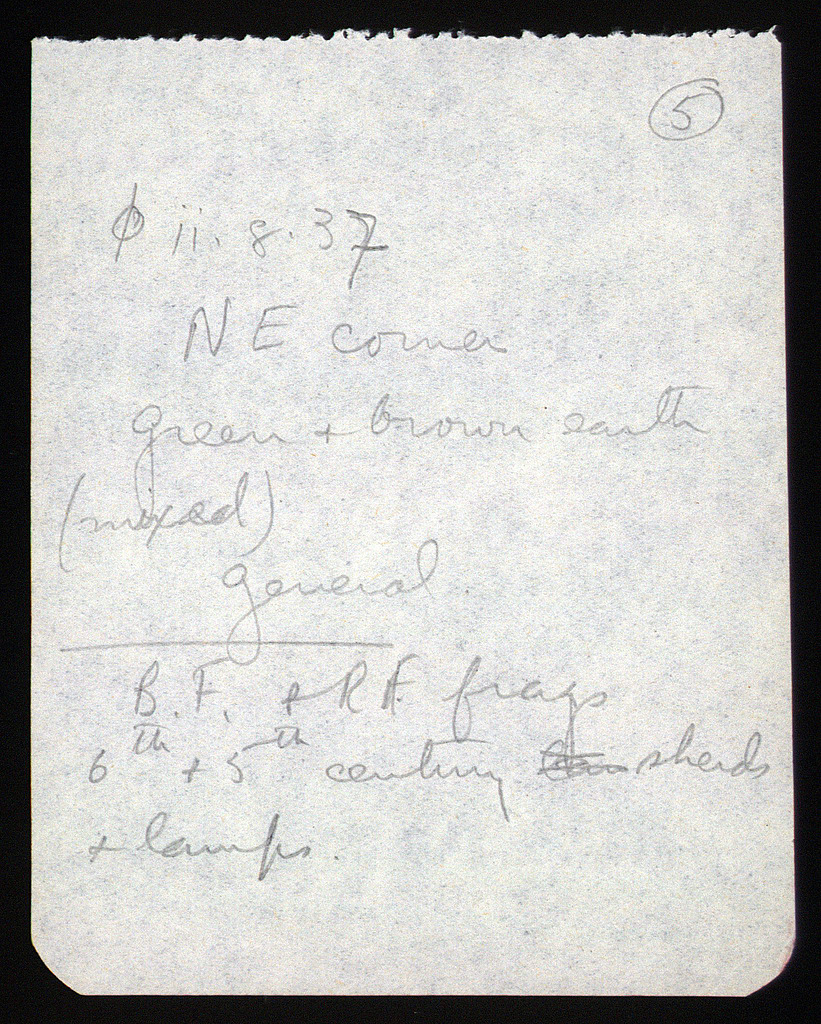 5
φ ii. 8. 37
NE corner
green + brown earth
(mixed)
general
B.F. + R.F. frags
6th + 5th century sherds
+ lamps.